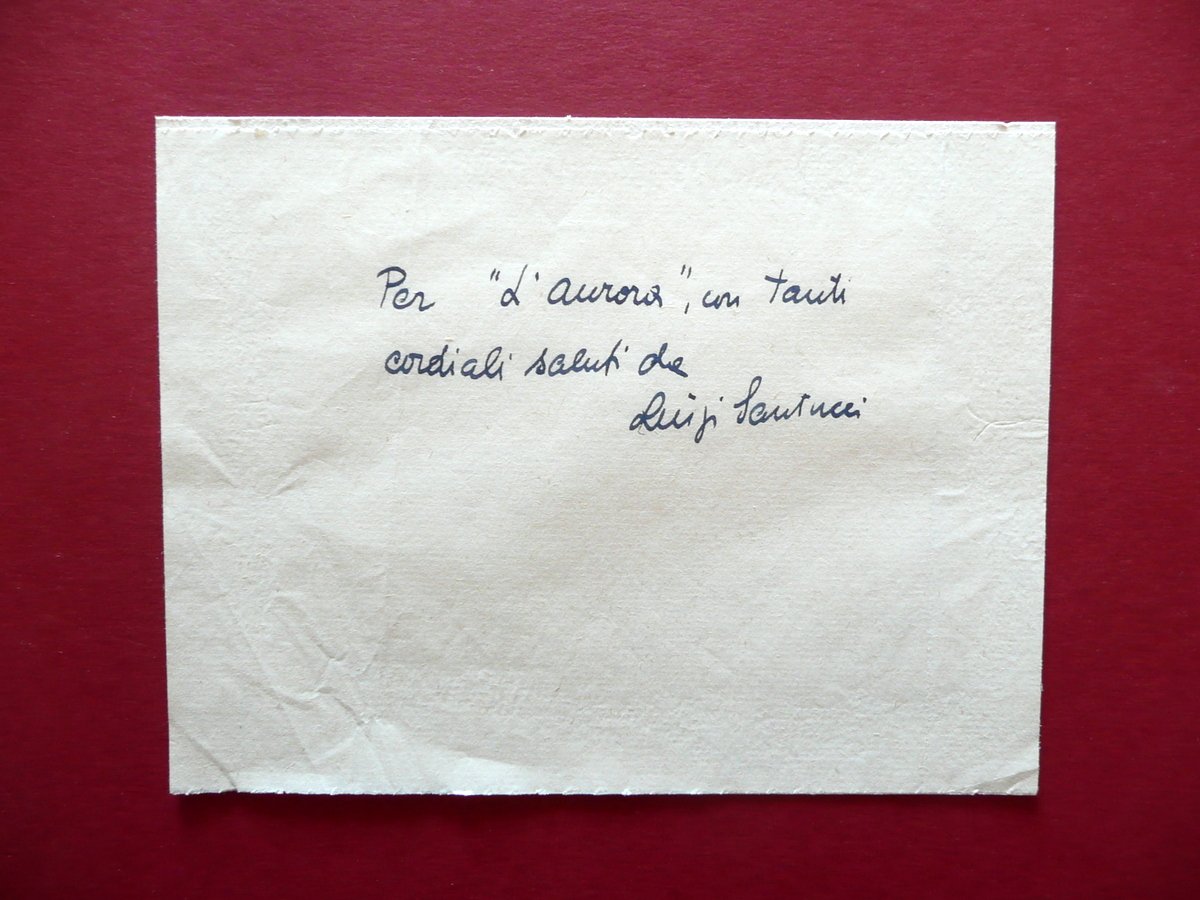 Per "L'aurora", con tanti
cordiali saluti da
Luigi Santucci